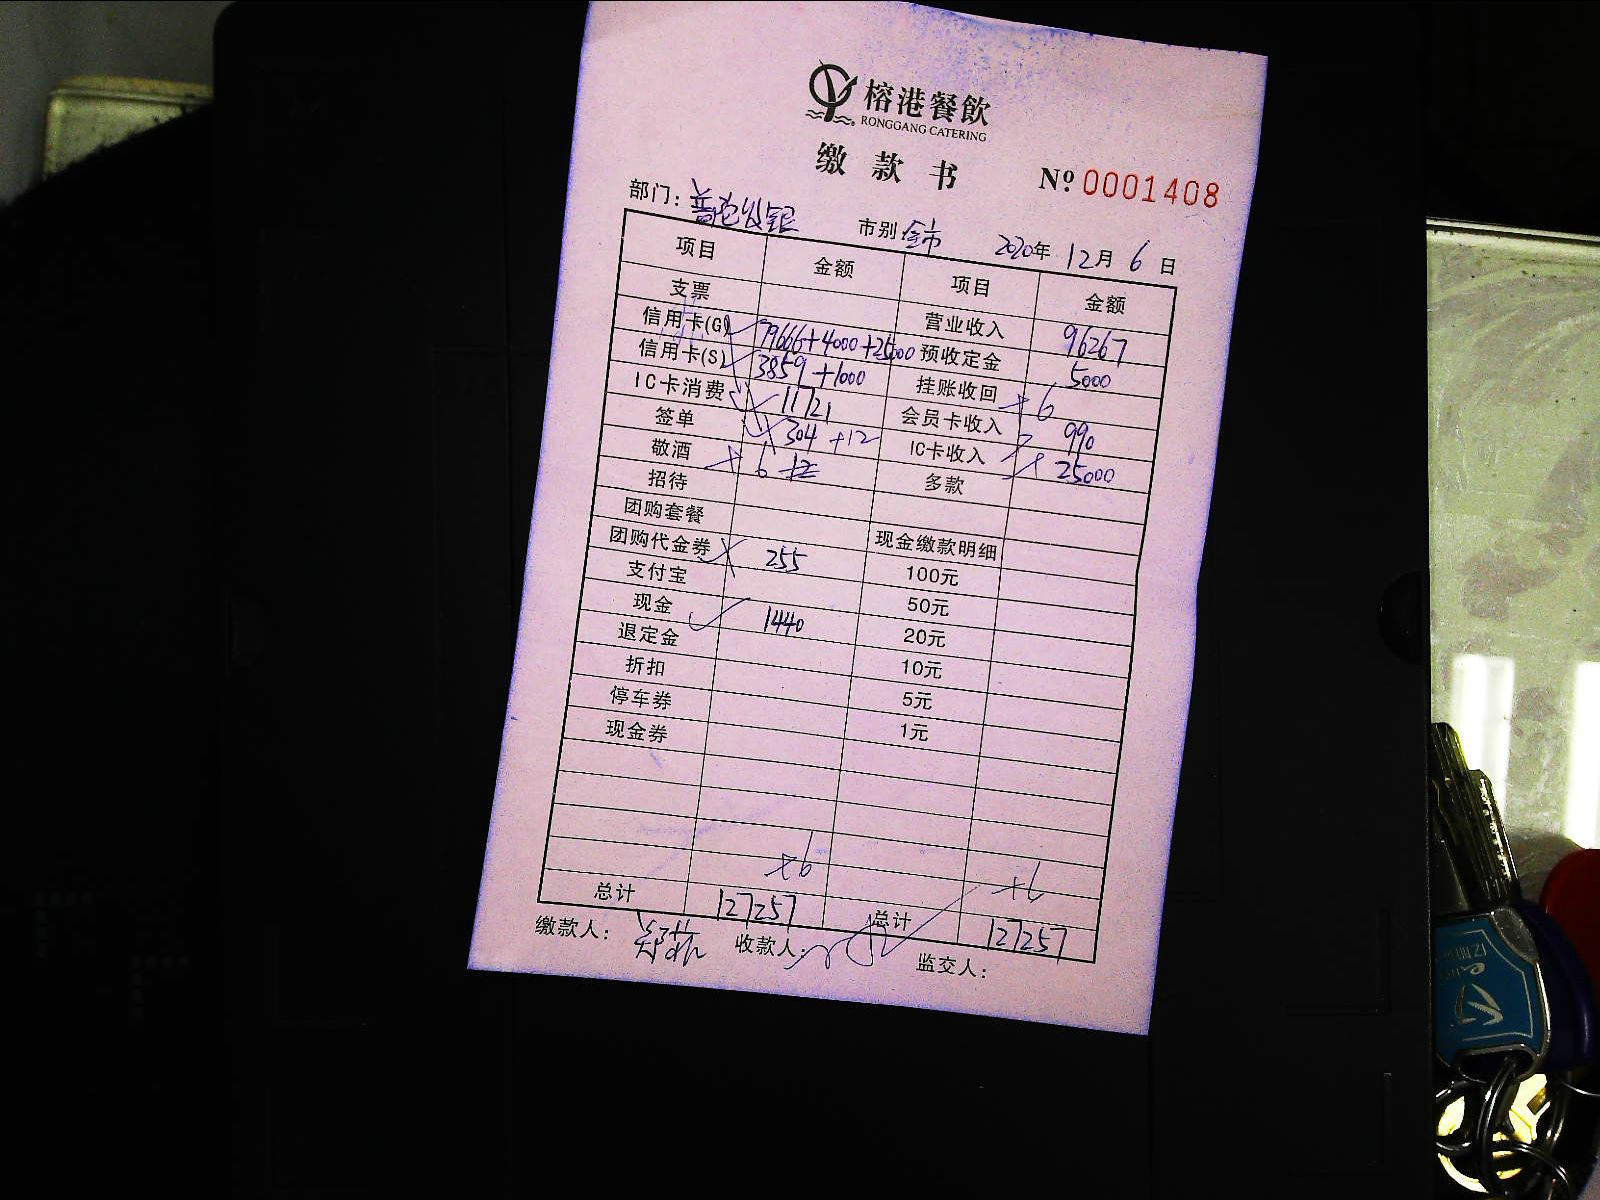 榕港餐飲
RONGGANG CATERING
缴款书 Nº 0001408
部门: 普陀收银 市别 全市 2020年 12月 6日
项目 金额 项目 金额
支票 营业收入 96267
信用卡(G) 79666+4000+25000 预收定金 5000
信用卡(S) 3859+1000 挂账收回 +6
IC卡消费 11721 会员卡收入 990
签单 304 +12 IC卡收入 25000
敬酒 6 多款
招待
团购套餐 现金缴款明细
团购代金券 255 100元
支付宝 50元
现金 1440 20元
退定金 10元
折扣 5元
停车券 1元
现金券
+6 +6
总计 127257 总计 127257
缴款人: 收款人: 监交人: